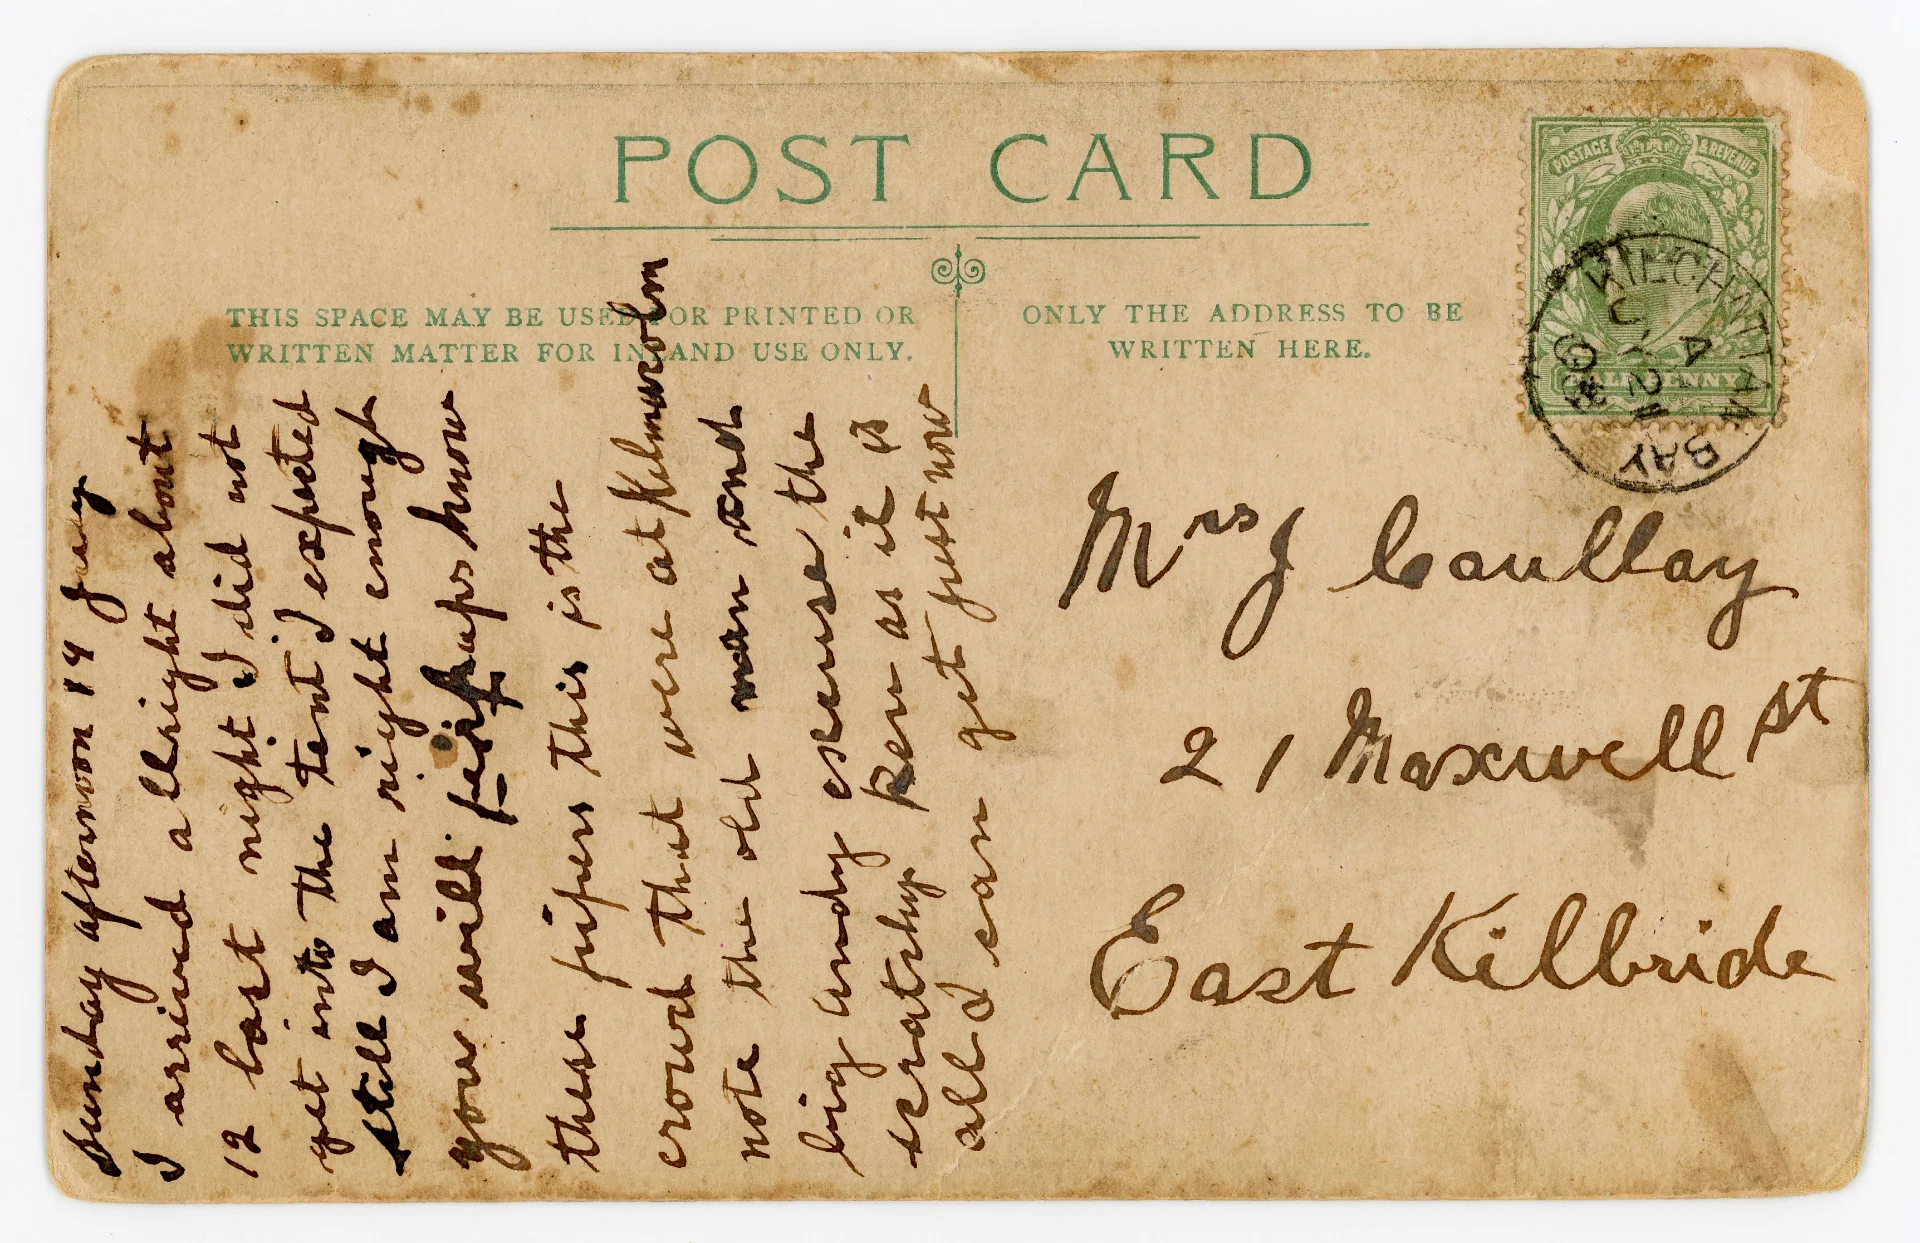 POST CARD
THIS SPACE MAY BE USED FOR PRINTED OR
WRITTEN MATTER FOR INLAND USE ONLY.
ONLY THE ADDRESS TO BE
WRITTEN HERE.
POSTAGE & REVENUE
HALFPENNY
KILCHATTAN BAY
A
JY 21
Sunday afternoon 19
I arrived allright about
12 last night I did not
get into the tent I expected
still I am right enough
you will perhaps know
these pipers this is the
crowd that were at Kilmacolm
note the old man and
big andy excuse the
scratchy pen as it is
all I can get just now
Mrs J Caullay
21 Maxwell St
East Kilbride